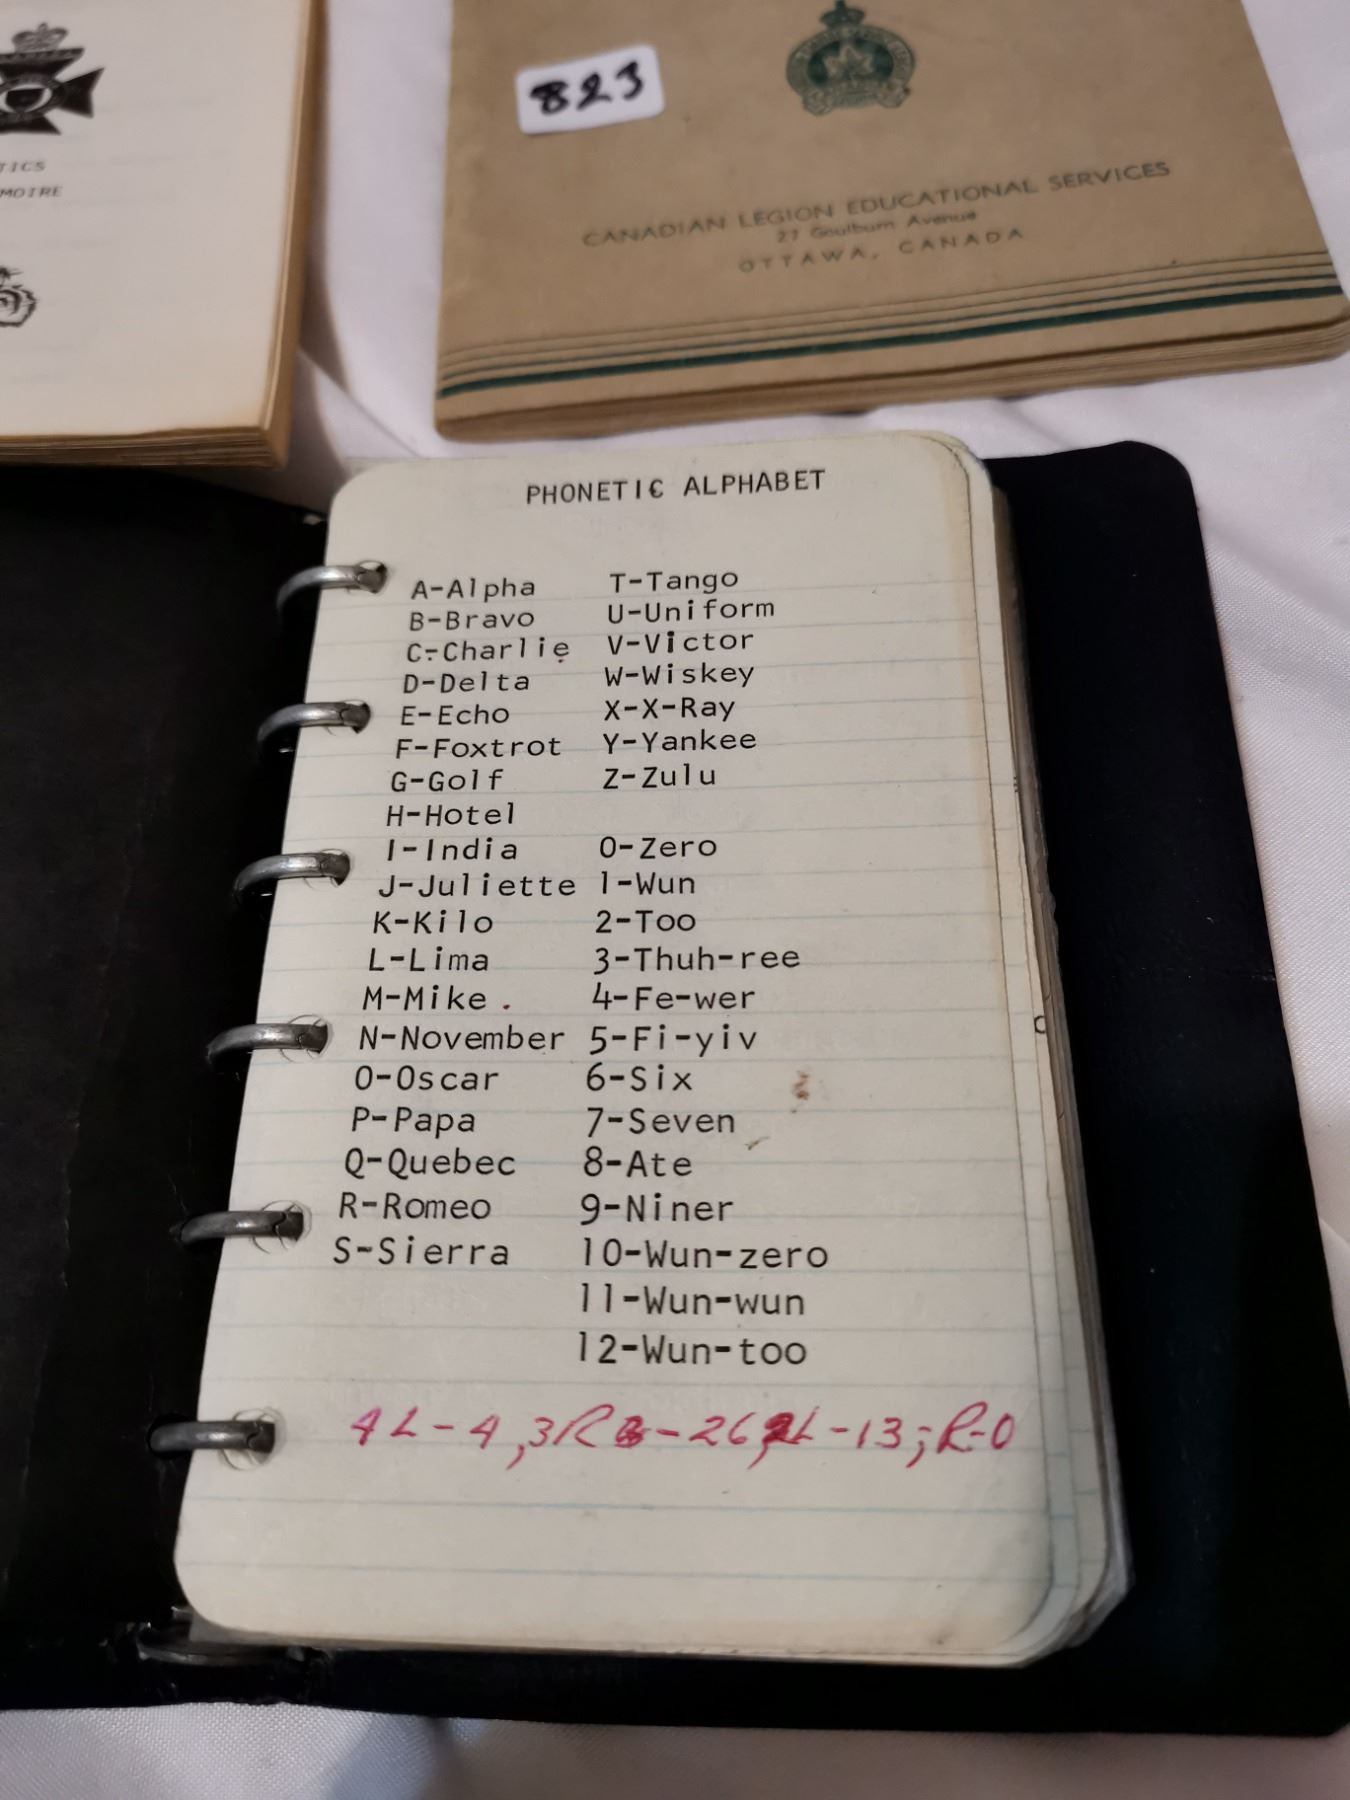 TICS
MOIRE
823
CANADIAN LEGION EDUCATIONAL SERVICES
27 Goulburn Avenue
OTTAWA, CANADA
PHONETIC ALPHABET
A-Alpha
B-Bravo
C-Charlie
D-Delta
E-Echo
F-Foxtrot
G-Golf
H-Hotel
I-India
J-Juliette
K-Kilo
L-Lima
M-Mike .
N-November
O-Oscar
P-Papa
Q-Quebec
R-Romeo
S-Sierra
T-Tango
U-Uniform
V-Victor
W-Wiskey
X-X-Ray
Y-Yankee
Z-Zulu
0-Zero
1-Wun
2-Too
3-Thuh-ree
4-Fe-wer
5-Fi-yiv
6-Six
7-Seven
8-Ate
9-Niner
10-Wun-zero
11-Wun-wun
12-Wun-too
4L-4, 3R -26, L-13; R-0